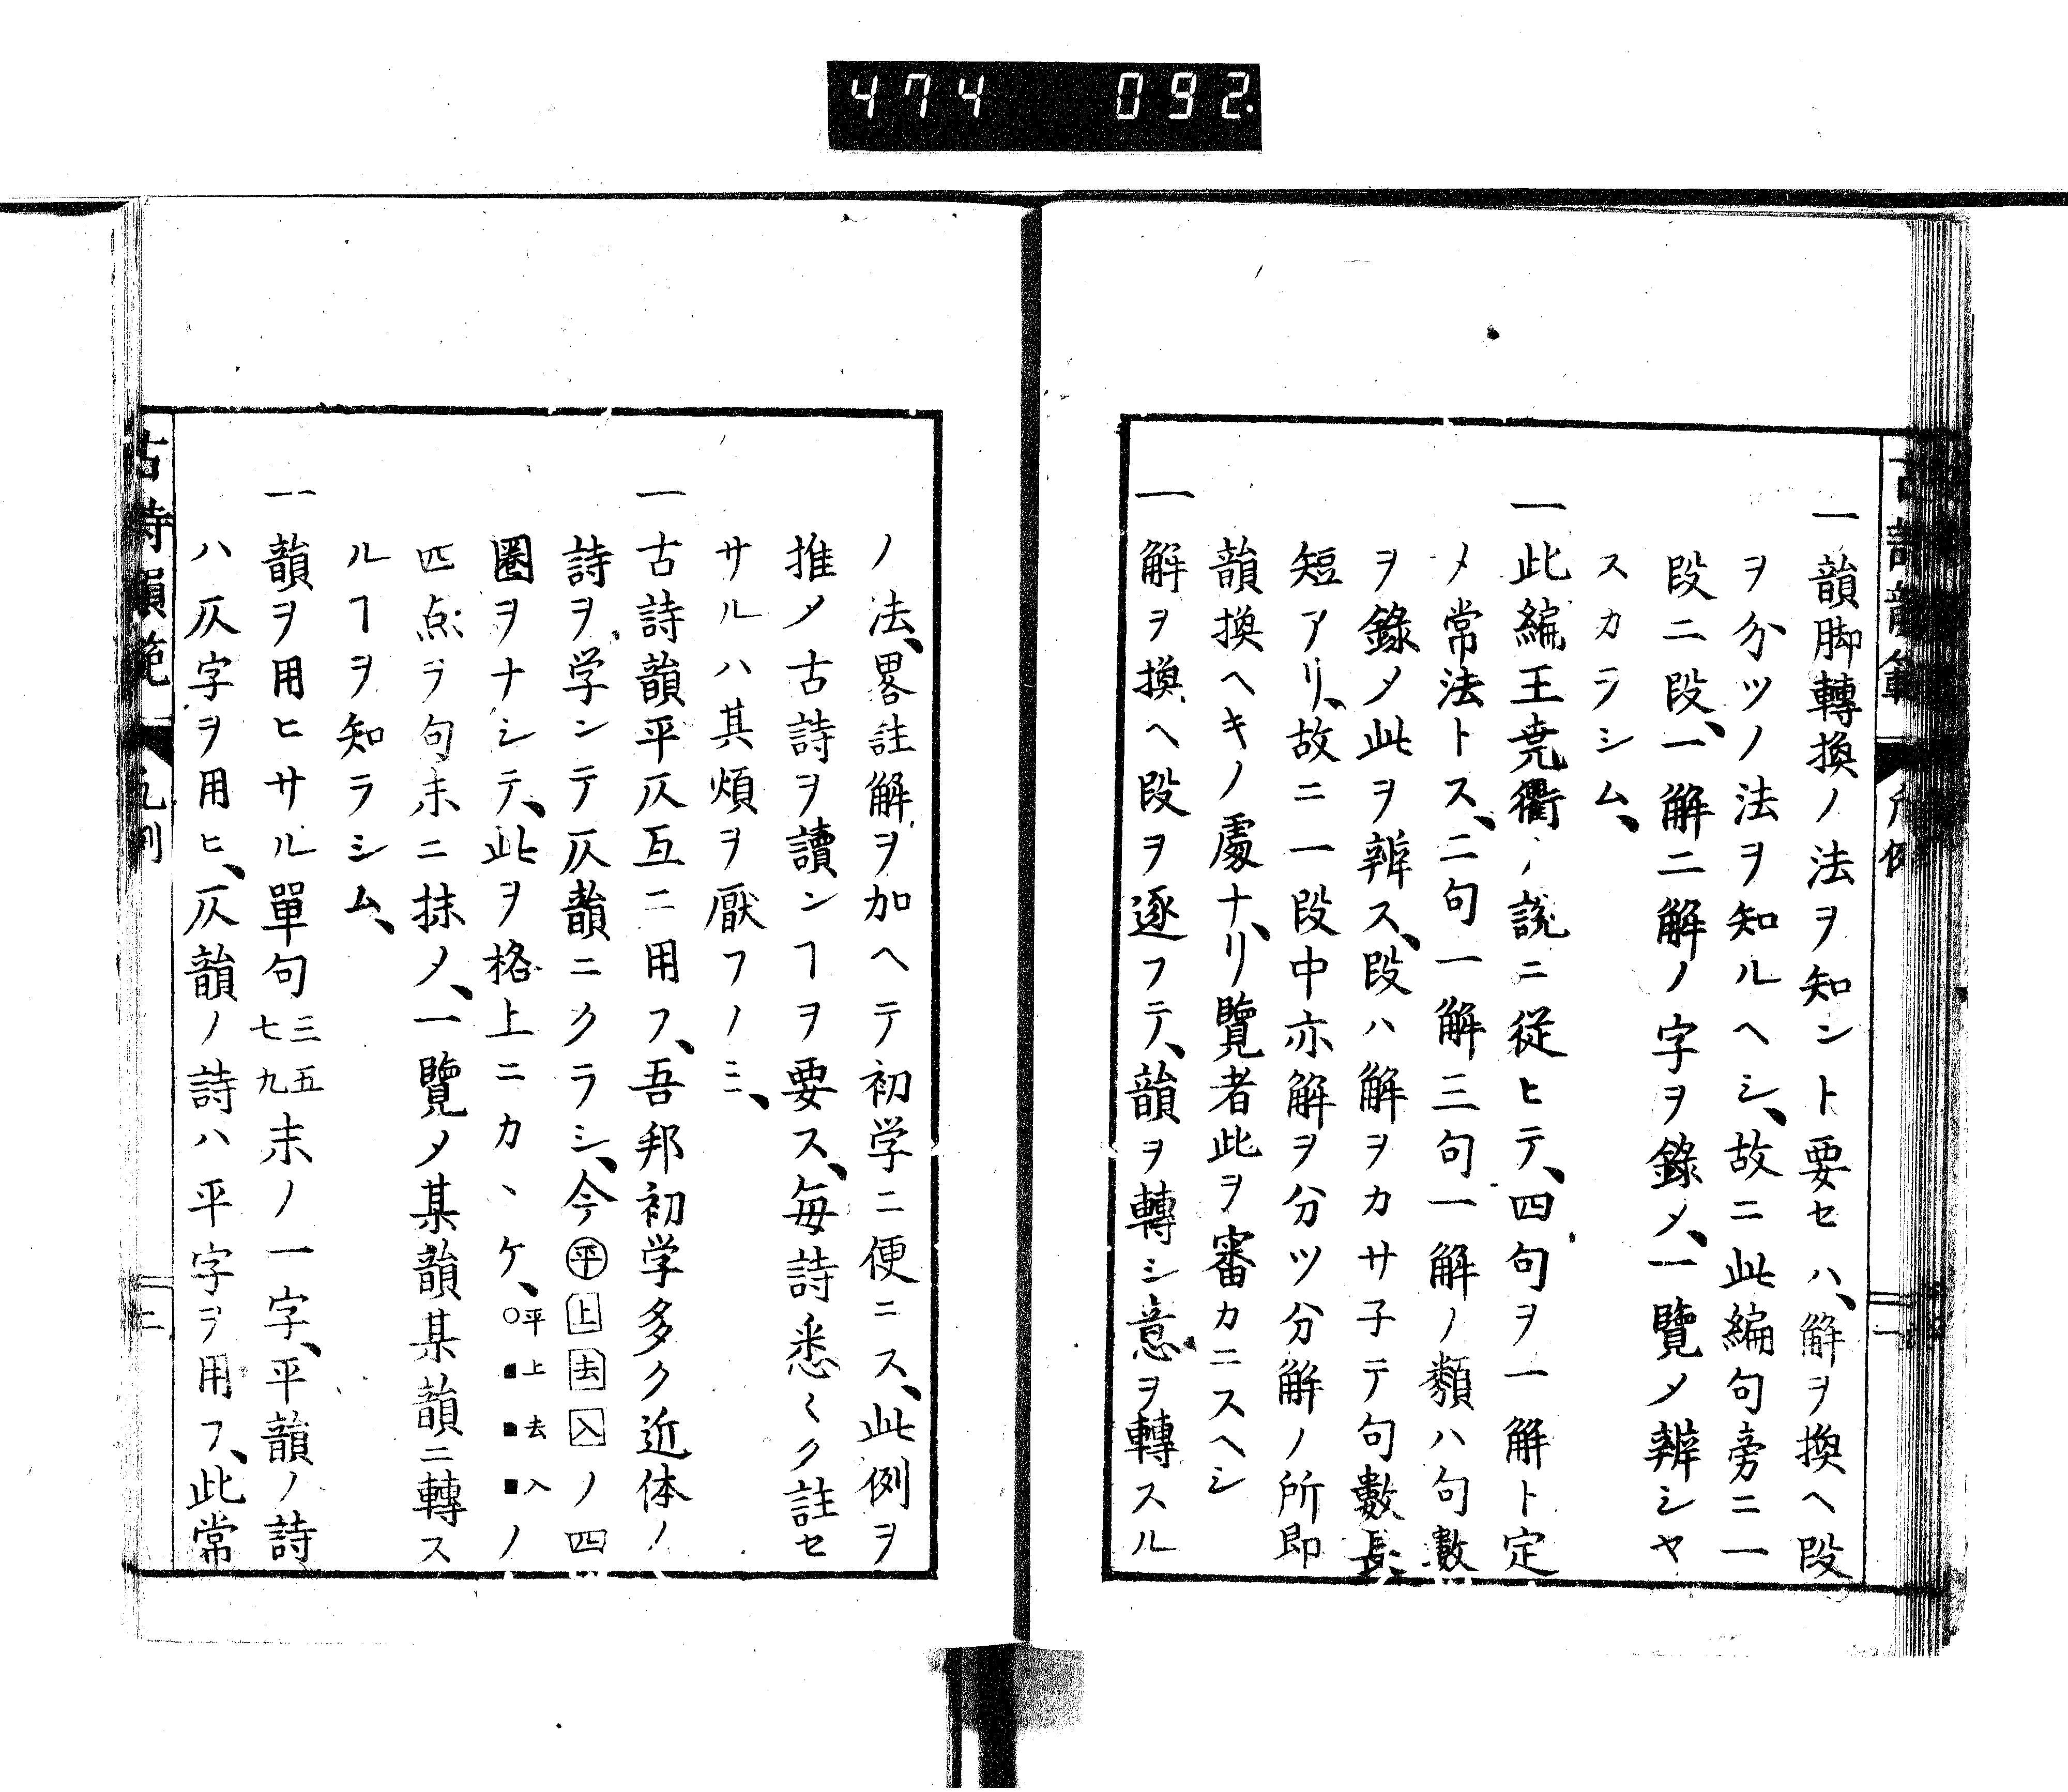 474 092
古詩韻範 凡例
一韻脚轉換ノ法ヲ知ント要セハ、解ヲ換ヘ段
ヲ分ツノ法ヲ知ルヘシ、故ニ此編句旁ニ一
段二段、一解二解ノ字ヲ錄メ、一覽メ辨シヤ
スカラシム、
一此編王尭衢ノ説ニ從ヒテ、四句ヲ一解ト定
メ常法トス、二句一解三句一解ノ類ハ句數
ヲ錄メ此ヲ辨ス、段ハ解ヲカサ子テ句數長
短アリ、故ニ一段中亦解ヲ分ツ分解ノ所即
韻換ヘキノ處ナリ、覽者此ヲ審カニスヘシ
一解ヲ換ヘ段ヲ逐フテ、韻ヲ轉シ意ヲ轉スル
ノ法、畧註解ヲ加ヘテ初学ニ便ニス、此例ヲ
推メ古詩ヲ讀ンヿヲ要ス、毎詩悉くク註セ
サルハ其煩ヲ厭フノミ、
一古詩韻平仄互ニ用フ、吾邦初学多ク近体ノ
詩ヲ学ンテ仄韻ニクラシ、今㊤平上去入ノ四
圏ヲナシテ、此ヲ格上ニカヽケ、○平■上■去■入ノ
四点ヲ句末ニ抹ノ、一覽メ某韻某韻ニ轉ス
ルヿヲ知ラシム、
一韻ヲ用ヒサル單句三五七九末ノ一字、平韻ノ詩
ハ仄字ヲ用ヒ、仄韻ノ詩ハ平字ヲ用フ、此常
古詩韻範 凡例 二